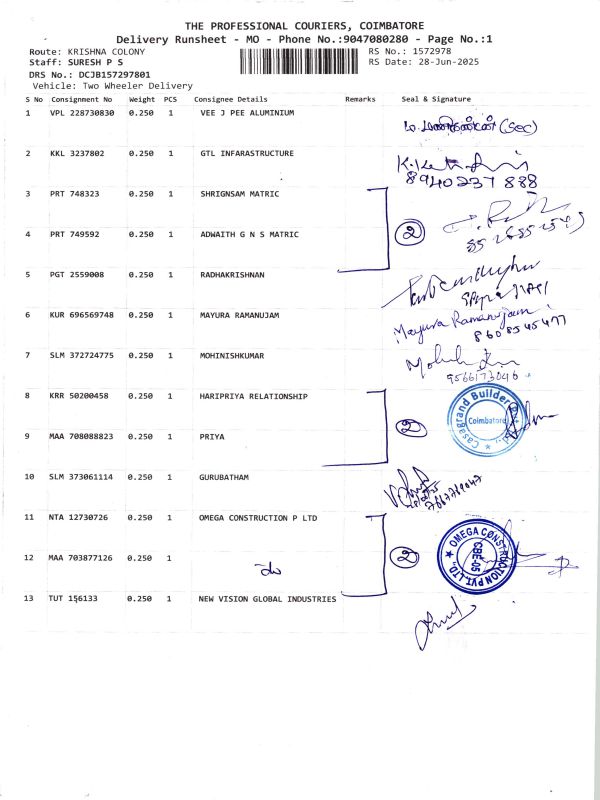 THE PROFESSIONAL COURIERS, COIMBATORE
Delivery Runsheet - MO - Phone No.:9047080280 - Page No.:1
Route: KRISHNA COLONY RS No.: 1572978
Staff: SURESH P S RS Date: 28-Jun-2025
DRS No.: DCJB157297801
Vehicle: Two Wheeler Delivery
S No Consignment No Weight PCS Consignee Details Remarks Seal & Signature
1 VPL 228730830 0.250 1 VEE J PEE ALUMINIUM (Sec)
2 KKL 3237802 0.250 1 GTL INFARASTRUCTURE
8940237888
3 PRT 748323 0.250 1 SHRIGNSAM MATRIC
2
4 PRT 749592 0.250 1 ADWAITH G N S MATRIC
5 PGT 2559008 0.250 1 RADHAKRISHNAN
6 KUR 696569748 0.250 1 MAYURA RAMANUJAM Mayura Ramanujam
8608545477
7 SLM 372724775 0.250 1 MOHINISHKUMAR
9566173046
8 KRR 50200458 0.250 1 HARIPRIYA RELATIONSHIP
2 Casagrand Builder Coimbatore
9 MAA 708088823 0.250 1 PRIYA
10 SLM 373061114 0.250 1 GURUBATHAM
11 NTA 12730726 0.250 1 OMEGA CONSTRUCTION P LTD
2 OMEGA CONSTRUCTION PVT. LTD. CBE-05
12 MAA 703877126 0.250 1
13 TUT 156133 0.250 1 NEW VISION GLOBAL INDUSTRIES